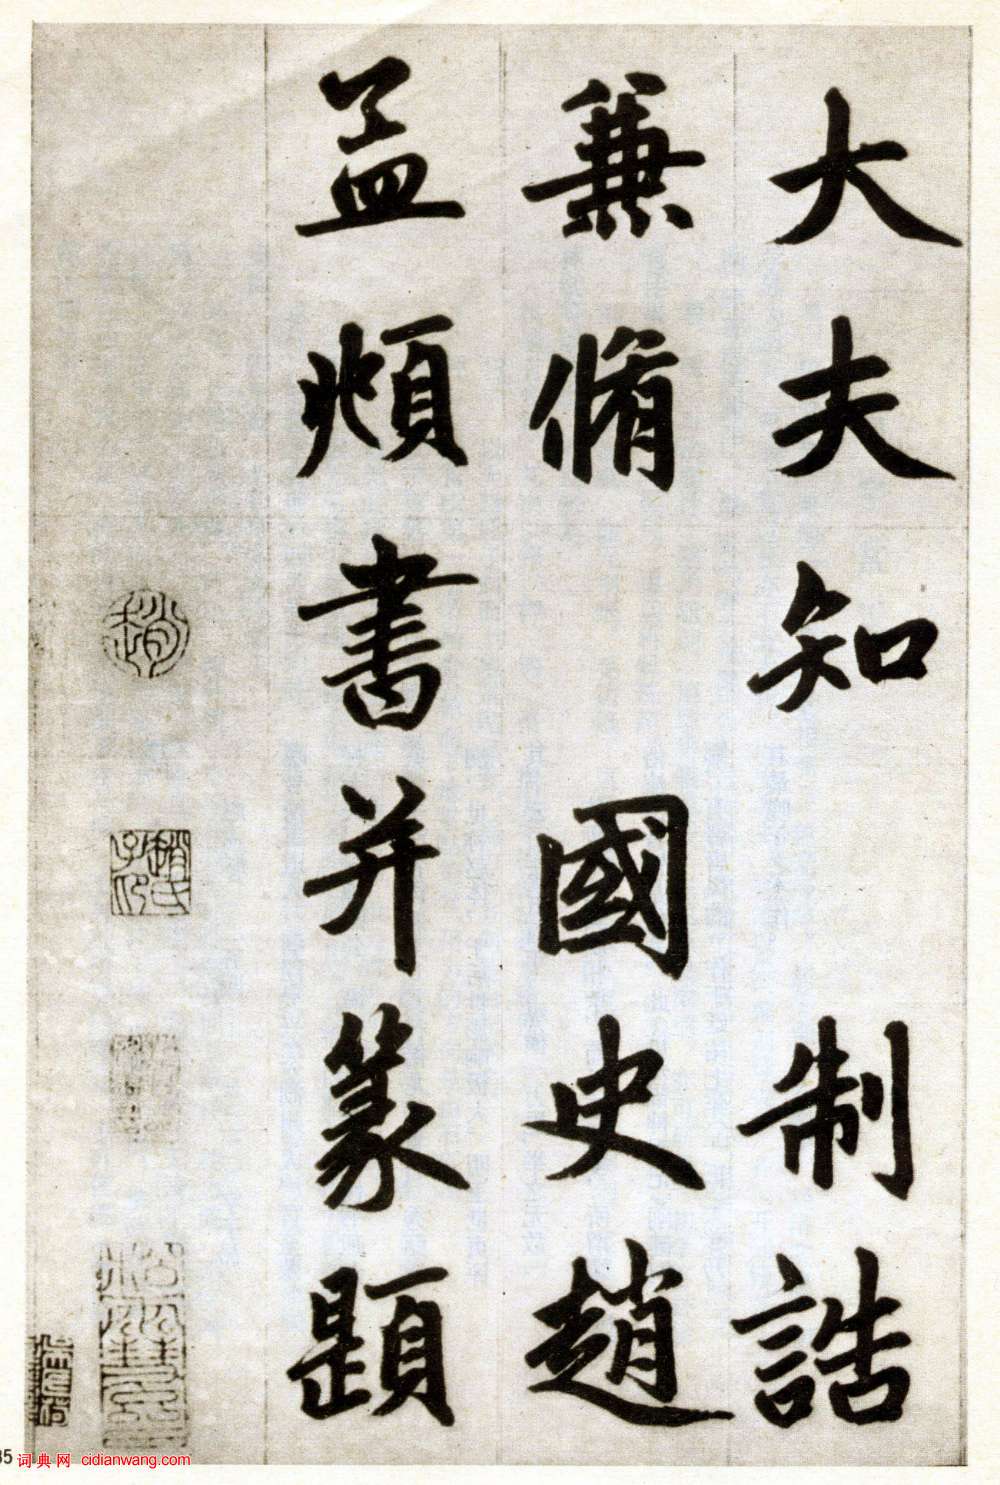 大夫知制誥
兼脩國史趙
孟頫書并篆題
趙
趙氏子印
35 词典网 cidianwang.com